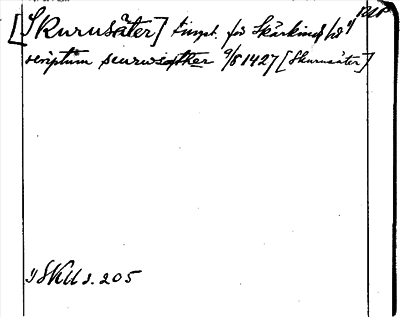 [Skurusäter] tingst. för Skärkinds hd 1)
scriptum scurusather 9/8 1427 [Skurusäter]
1) SKU s. 205